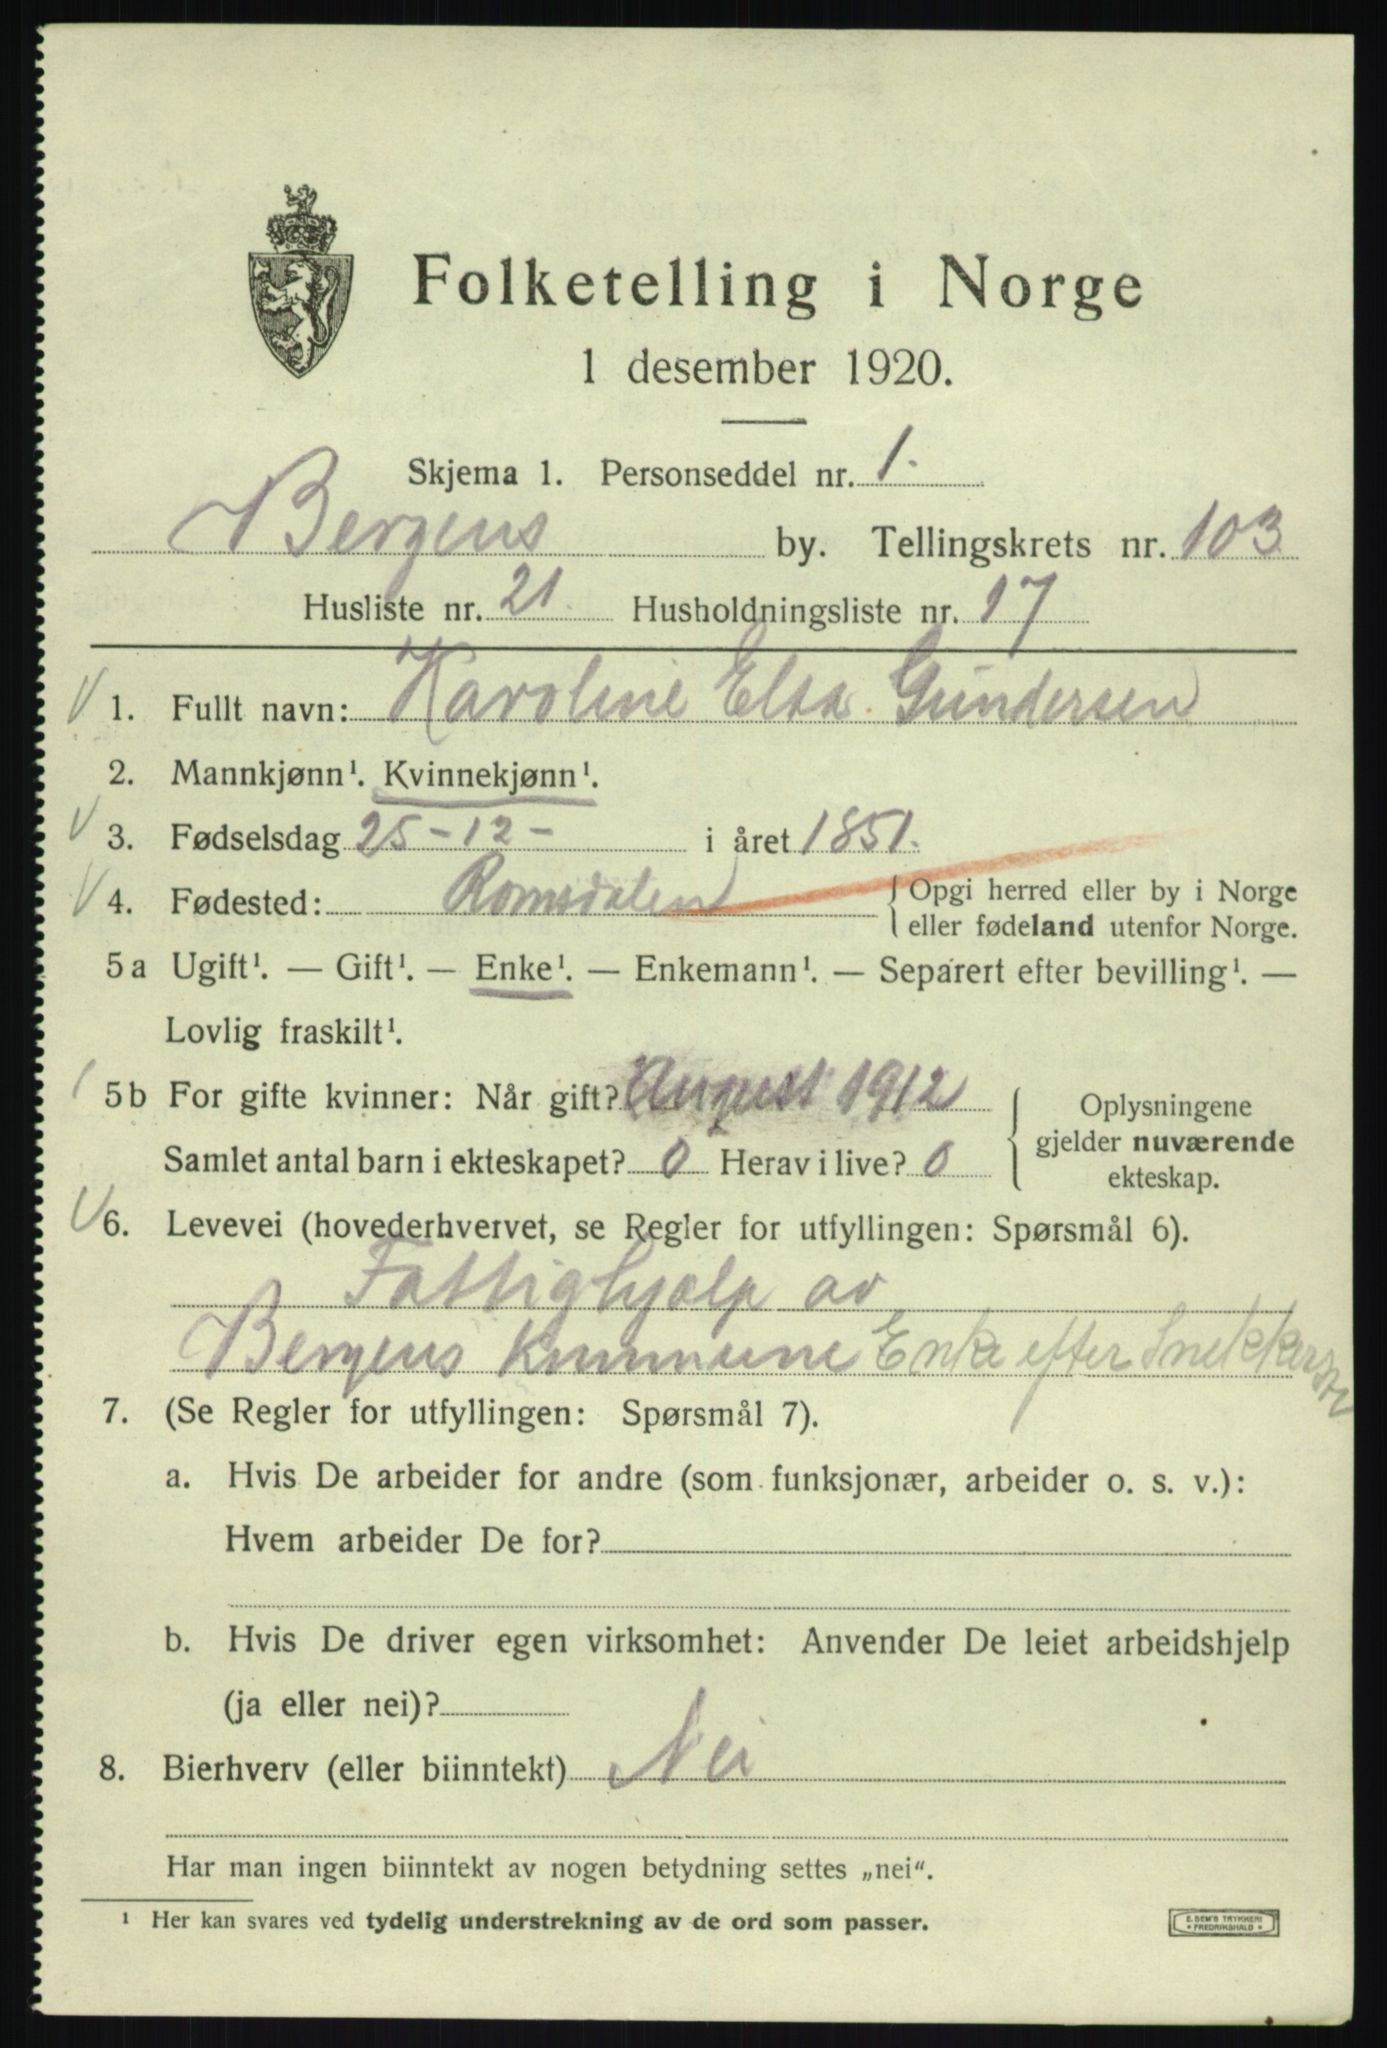 Folketelling i Norge
1 desember 1920.
Skjema 1. Personseddel nr. 1.
Bergens by. Tellingskrets nr. 103
Husliste nr. 21. Husholdningsliste nr. 17
1. Fullt navn: Karoline Elsa Gundersen
2. Mannkjønn¹. Kvinnekjønn¹.
3. Fødselsdag 25-12- i året 1851.
4. Fødested: Romsdalen { Opgi herred eller by i Norge
eller fødeland utenfor Norge.
5a Ugift¹. — Gift¹. — Enke¹. — Enkemann¹. — Separert efter bevilling¹. —
Lovlig fraskilt¹.
5b For gifte kvinner: Når gift? August 1912
Samlet antal barn i ekteskapet? 0 Herav i live? 0
{ Oplysningene
gjelder nuværende
ekteskap.
6. Levevei (hovederhvervet, se Regler for utfyllingen: Spørsmål 6).
Fattighjælp av
Bergens Kommune Enke efter Snekkersv
7. (Se Regler for utfyllingen: Spørsmål 7).
a. Hvis De arbeider for andre (som funksjonær, arbeider o. s. v.):
Hvem arbeider De for?
b. Hvis De driver egen virksomhet: Anvender De leiet arbeidshjelp
(ja eller nei)?
8. Bierhverv (eller biinntekt) Nei
Har man ingen biinntekt av nogen betydning settes „nei“.
¹ Her kan svares ved tydelig understrekning av de ord som passer.
E. SEM'S TRYKKERI
* FREDRIKSHALD *